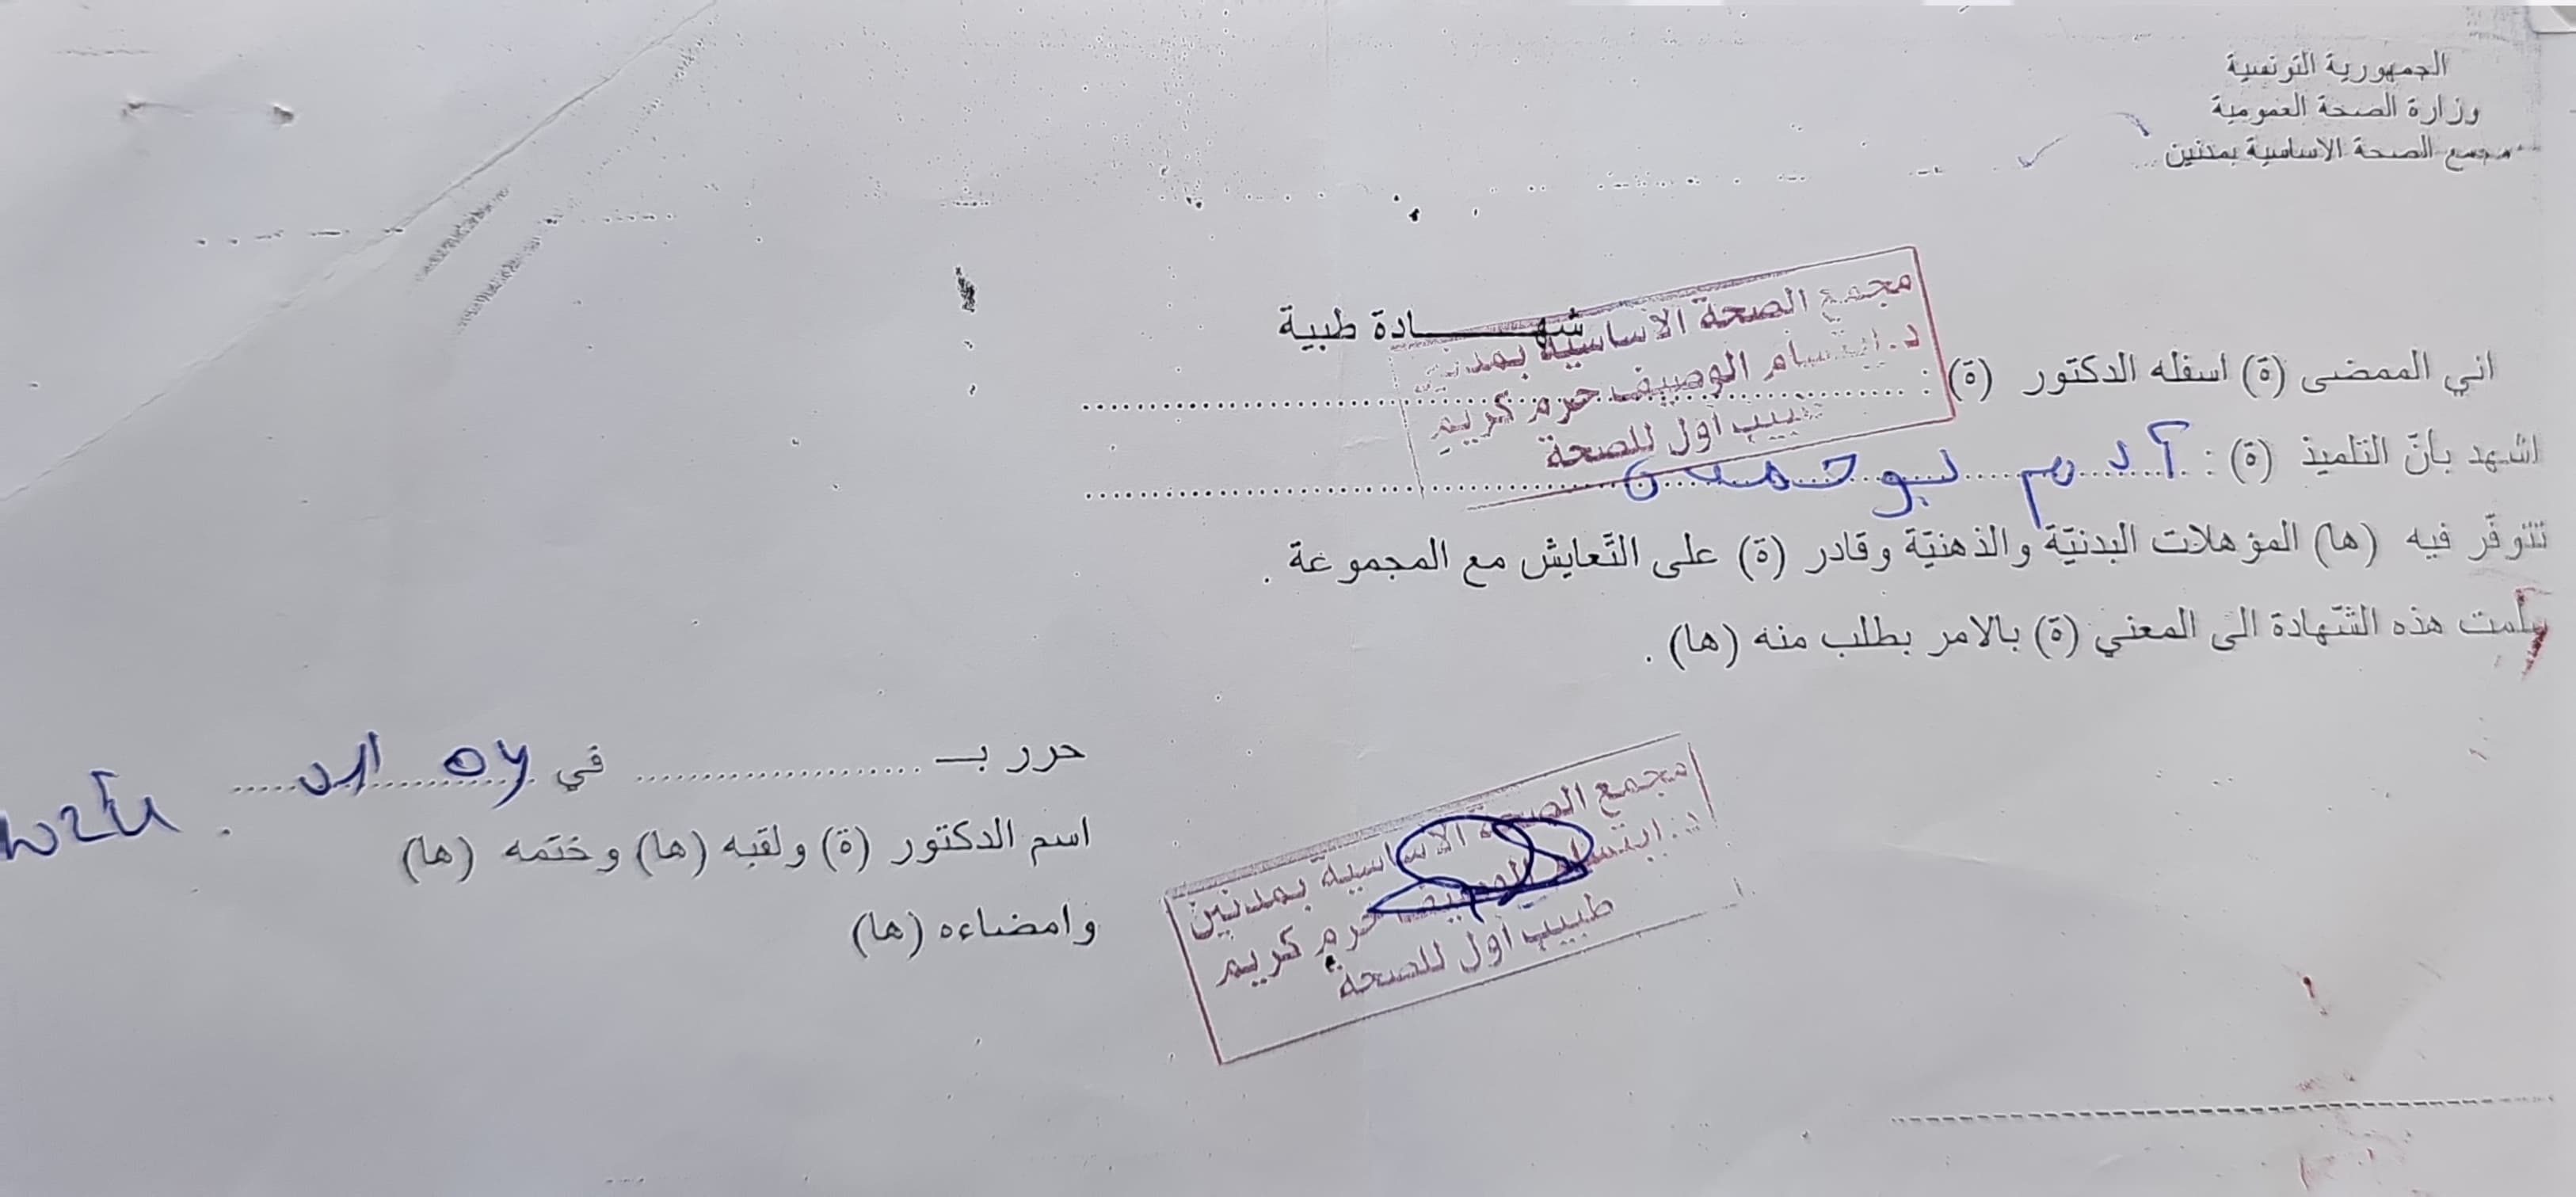 الجمهورية التونسية
وزارة الصحة العمومية
مجمع الصحة الاساسية بمدنين
شهـــــــادة طبية
مجمع الصحة الأساسية بمدنين
د. ابتسام الوصيف حرم كريم
طبيب أول للصحة
اني الممضى (ة) اسفله الدكتور (ة) :
اشهد بأنّ التلميذ (ة) : آدم بوحمدن
تتوفّر فيه (ها) المؤهلات البدنيّة والذهنيّة وقادر (ة) على التّعايش مع المجموعة .
سلمت هذه الشّهادة الى المعني (ة) بالامر بطلب منه (ها) .
حرر بـ في
اسم الدكتور (ة) ولقبه (ها) وختمه (ها)
وامضاءه (ها)
مجمع الصحة الأساسية بمدنين
د. ابتسام الوصيف حرم كريم
طبيب أول للصحة